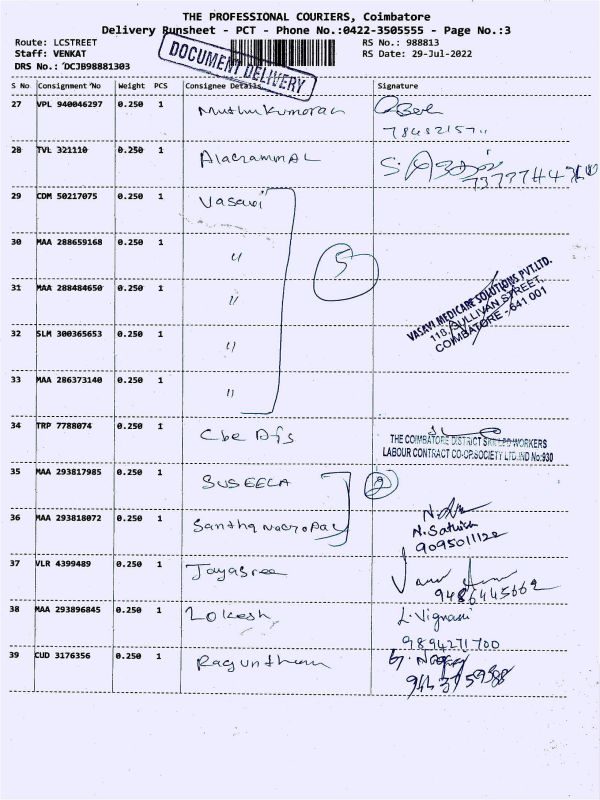 THE PROFESSIONAL COURIERS, Coimbatore
Delivery Runsheet - PCT - Phone No.:0422-3505555 - Page No.:3
Route: LCSTREET RS No.: 988813
Staff: VENKAT RS Date: 29-Jul-2022
DRS No.: DCJB98881303
DOCUMENT DELIVERY
S No Consignment No Weight PCS Consignee Details Signature
27 VPL 940046297 0.250 1 Muthukumaran
28 TVL 321110 0.250 1 Alagammal
29 CDM 50217075 0.250 1 Vasavi
30 MAA 288659168 0.250 1 " 5
31 MAA 288484650 0.250 1 "
VASAVI MEDICARE SOLUTIONS PVT.LTD.
118, SULLIVAN STREET,
COIMBATORE - 641 001
32 SLM 300365653 0.250 1 "
33 MAA 286373140 0.250 1 "
34 TRP 7788074 0.250 1 Cbe Dis
THE COIMBATORE DISTRICT SKILLED WORKERS
LABOUR CONTRACT CO-OP.SOCIETY LTD.IND No:930
35 MAA 293817985 0.250 1 SUSEELA 2
36 MAA 293818072 0.250 1 N. Sathish
9095011122
37 VLR 4399489 0.250 1 Jayasree
9486445662
38 MAA 293896845 0.250 1 Lokesh L. Vignasri
9894271700
39 CUD 3176356 0.250 1